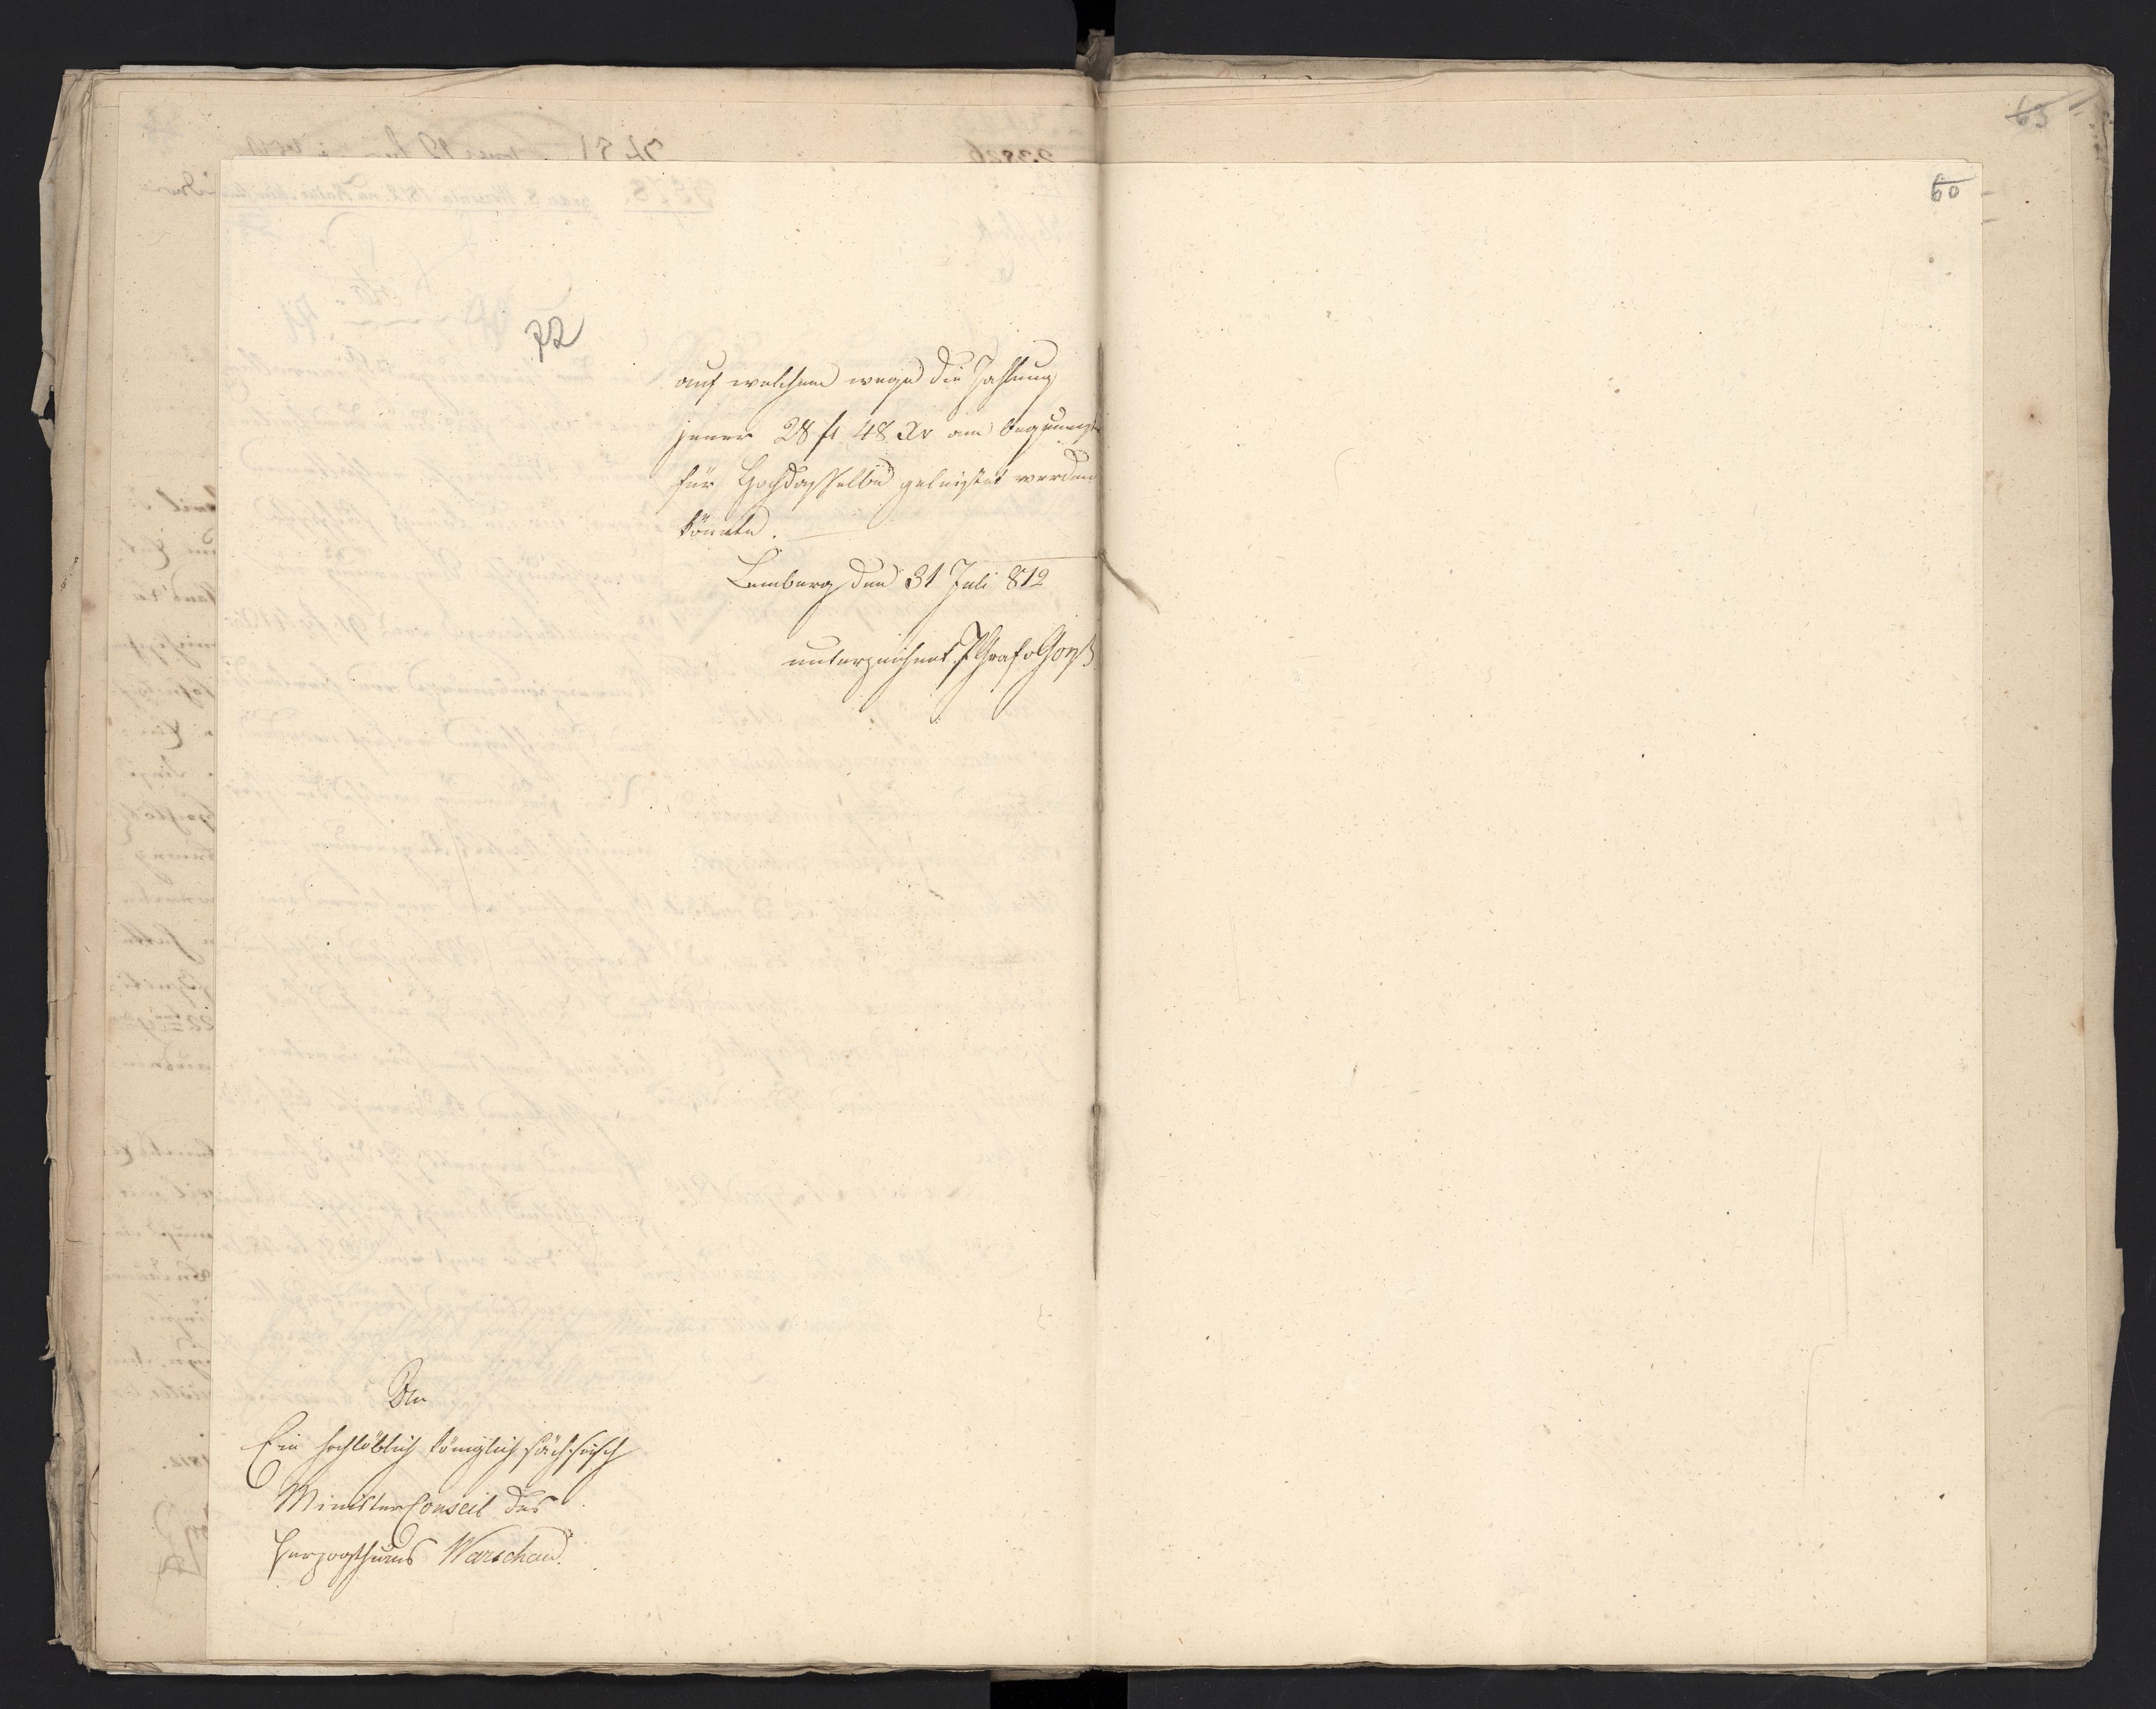 72
auf welchem wege die Zahlung
jener 28 fl 48 Xr am bequemst
für Hochdasselbe geleistet werden
könnte.
Lemberg den 31 Juli 812
unterzeichnet P Graf v Goëß
An
Ein hochlöblich königlich sächsisch
Minister Conseil des
Herzogthums Warschau.
63
60